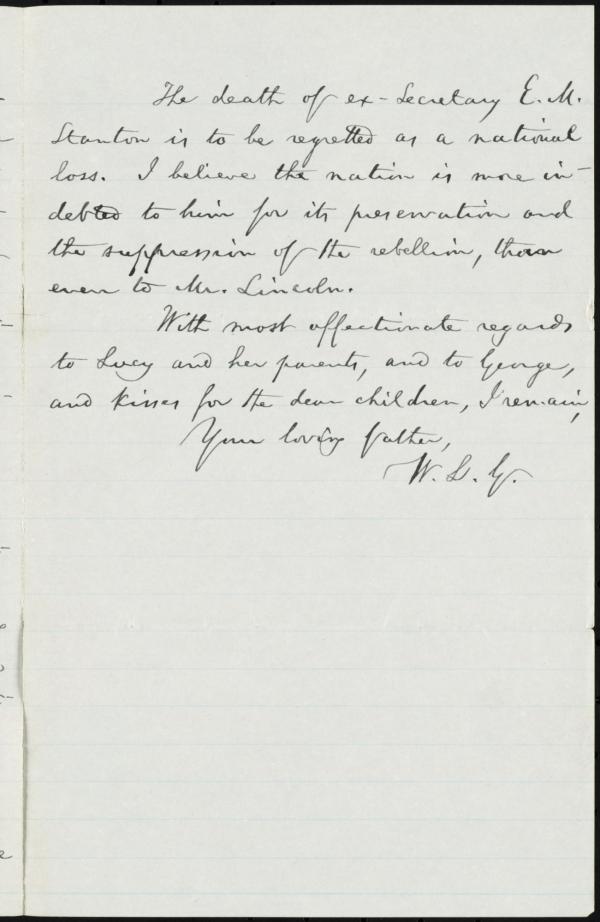 The death of ex-Secretary E. M.
Stanton is to be regretted as a national
loss. I believe the nation is more in-
debted to him for its preservation and
the suppression of the rebellion, than
even to Mr. Lincoln.
With most affectionate regards
to Lucy and her parents, and to George,
and kisses for the dear children, I remain,
Your loving father,
W. L. G.